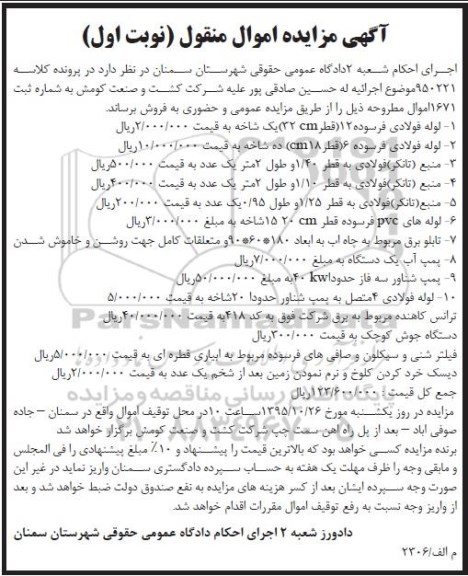 آگهی مزایده اموال منقول (نوبت اول)
اجرای احکام شعبه ۲دادگاه عمومی حقوقی شهرستان سمنان در نظر دارد در پرونده کلاسه
۹۵۰۲۲۱موضوع اجرائیه له حسین صادقی پور علیه شرکت کشت و صنعت کومش به شماره ثبت
۱۶۷۱اموال مطروحه ذیل را از طریق مزایده عمومی و حضوری به فروش برساند.
۱- لوله فولادی فرسوده۱۲(قطرcm ۳۲)یک شاخه به قیمت ۲/۰۰۰/۰۰۰ریال
۲- لوله فولادی فرسوده ۶(قطر۱۸cm) ده شاخه به قیمت ۱۰/۰۰۰/۰۰۰ریال
۳- منبع (تانکر)فولادی به قطر ۱/۴۰و طول ۲متر یک عدد به قیمت ۵۰۰/۰۰۰ریال
۴- منبع (تانکر)فولادی به قطر ۱/۱۰و طول ۲متر یک عدد به قیمت ۴۰۰/۰۰۰ریال
۵- منبع (تانکر)فولادی به قطر ۱/۲۵و طول ۰/۹۵یک عدد به قیمت ۲۰۰/۰۰۰ریال
۶- لوله های pvc فرسوده قطر cm ۲۰ ۱۵شاخه به مبلغ ۳/۰۰۰/۰۰۰ریال
۷- تابلو برق مربوط به چاه اب به ابعاد ۱۸۰*۶۰*۹۰و متعلقات کامل جهت روشن و خاموش شدن
۸- پمپ آب یک دستگاه به مبلغ ۷/۰۰۰/۰۰۰ریال
۹- پمپ شناور سه فاز حدودا۴۰kwبه مبلغ ۵۰/۰۰۰/۰۰۰ریال
۱۰- لوله فولادی ۴متصل به پمپ شناور حدودا ۲۰شاخه به قیمت ۵/۰۰۰/۰۰۰
ترانس کاهنده مربوط به برق شرکت فوق به کد ۴۱۸به قیمت ۴۰/۰۰۰/۰۰۰ریال
دستگاه جوش کوچک به قیمت ۳۰۰/۰۰۰ریال
فیلتر شنی و سیکلون و صافی های فرسوده مربوط به ابیاری قطره ای به قیمت ۵/۰۰۰/۰۰۰ریال
دیسک خرد کردن کلوخ و نرم نمودن زمین بعد از شخم یک عدد به قیمت ۲/۰۰۰/۰۰۰ریال
جمع کل قیمت : ۱۲۳/۶۰۰/۰۰۰ریال
مزایده در روز یکشنبه مورخ ۱۳۹۵/۱۰/۲۶ساعت ۱۰در محل توقیف اموال واقع در سمنان – جاده
صوفی اباد – بعد از پل راه اهن سمت چپ شرکت کشت و صنعت کومش برگزار خواهد شد
برنده مزایده کسی خواهد بود که بالاترین قیمت را پیشنهاد و ۱۰٪ مبلغ پیشنهادی را فی المجلس
و مابقی وجه را ظرف مهلت یک هفته به حساب سپرده دادگستری سمنان واریز نماید در غیر این
صورت وجه سپرده ایشان بعد از کسر هزینه های مزایده به نفع صندوق دولت ضبط خواهد شد و بعد
از واریز وجه نسبت به رفع توقیف اموال مقررات اقدام خواهد شد.
دادورز شعبه ۲ اجرای احکام دادگاه عمومی حقوقی شهرستان سمنان
م الف/۲۳۰۶